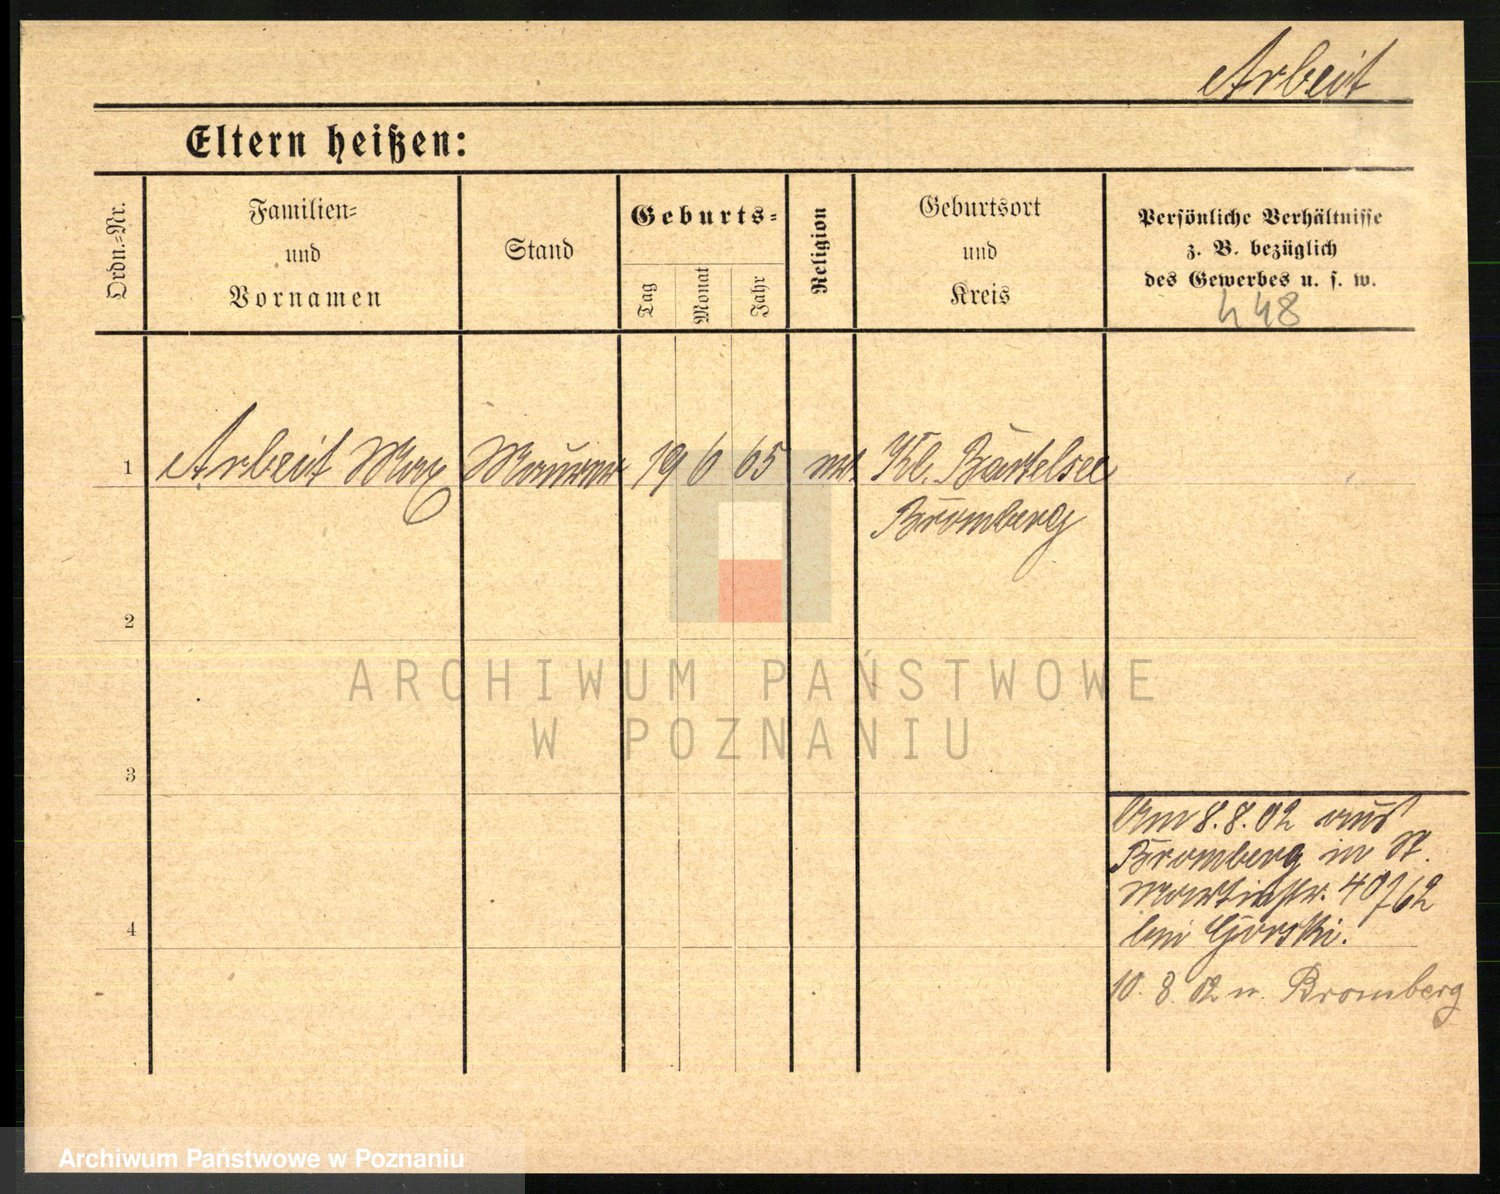 Arbeit
Eltern heißen:
Ordn.=Nr.
Familien=
und
Vornamen
Stand
Geburts=
Tag
Monat
Jahr
Religion
Geburtsort
und
Kreis
Persönliche Verhältnisse
z. B. bezüglich
des Gewerbes u. s. w.
448
1 Arbeit Max Maurer 19 6 65 Kl. Bartelsee
Bromberg
2
3
4
Am 8.8.02 aus
Bromberg in St.
Martinstr. 40/62
bei Gorski.
10. 8. 02 n. Bromberg
ARCHIWUM PAŃSTWOWE
W POZNANIU
Archiwum Państwowe w Poznaniu